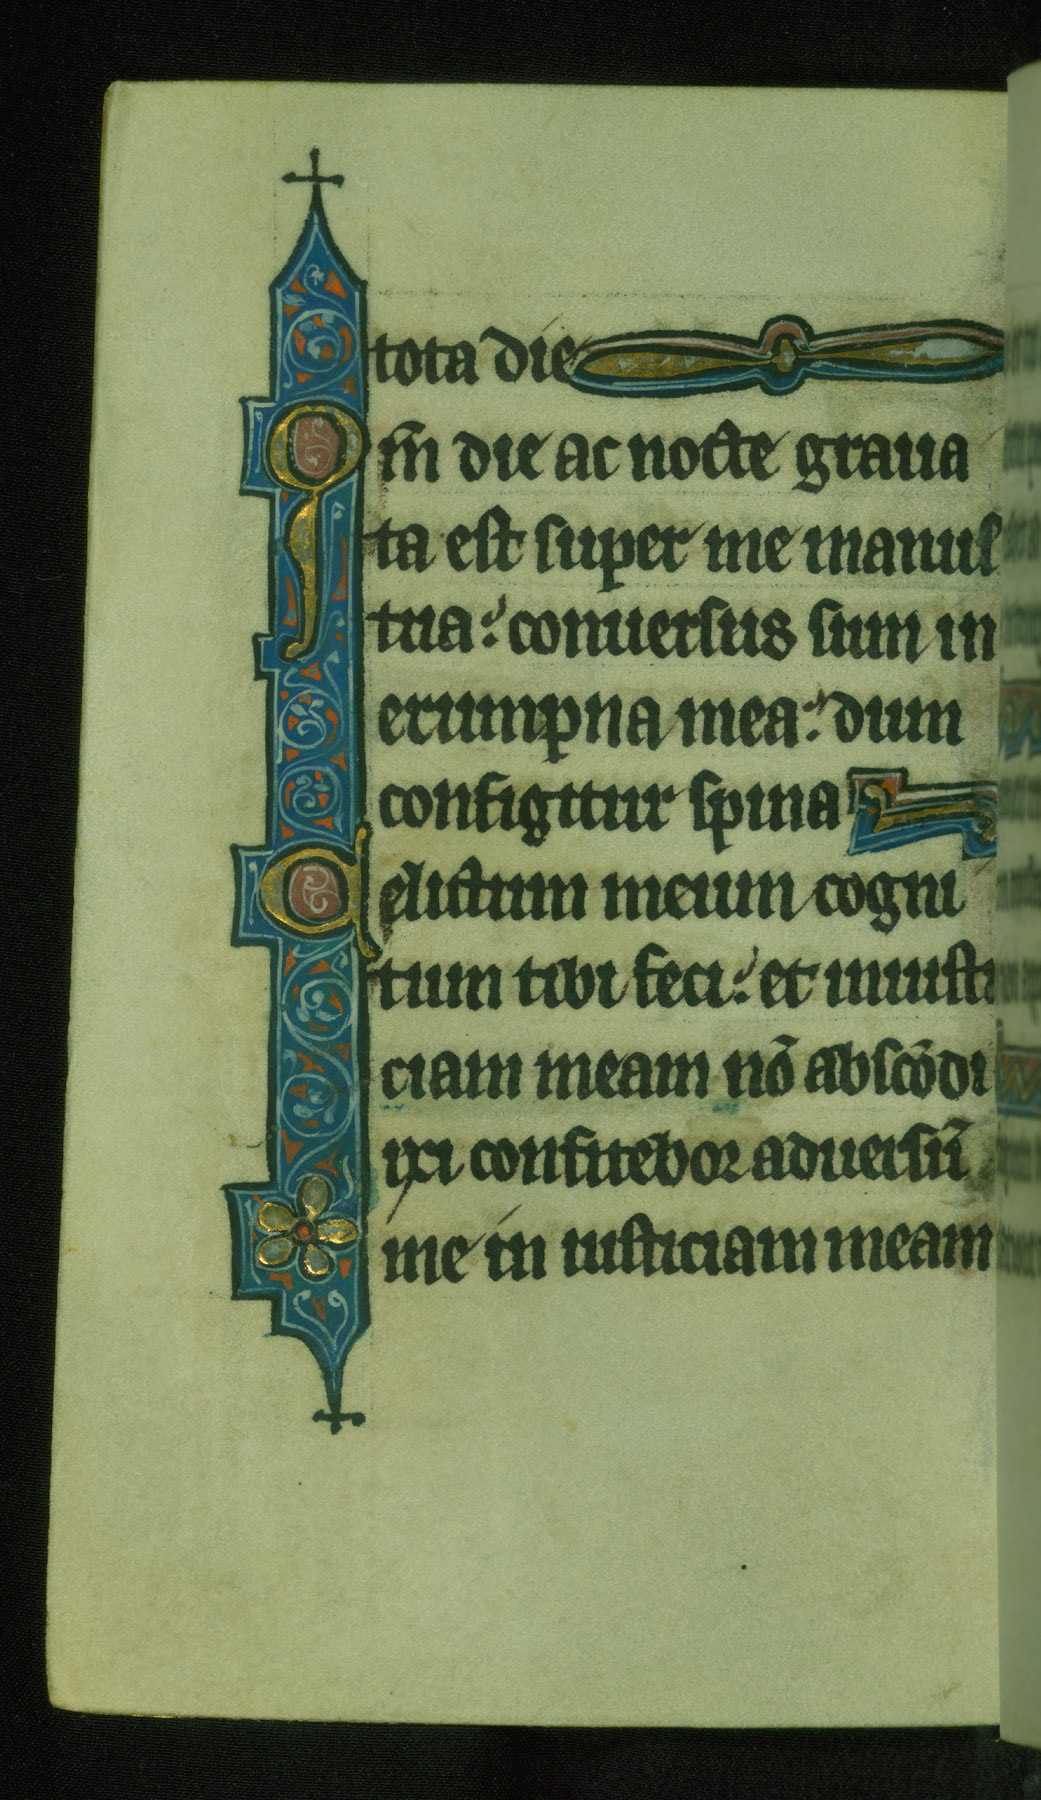 tota die
Qm̄ die ac nocte graua
ta est super me manus
tua: conuersus sum in
erumpna mea: dum
configitur spina
Delictum meum cogni
tum tibi feci: et iniusti
ciam meam nō abscōdi
ixi confitebor aduersū
me in iusticiam meam